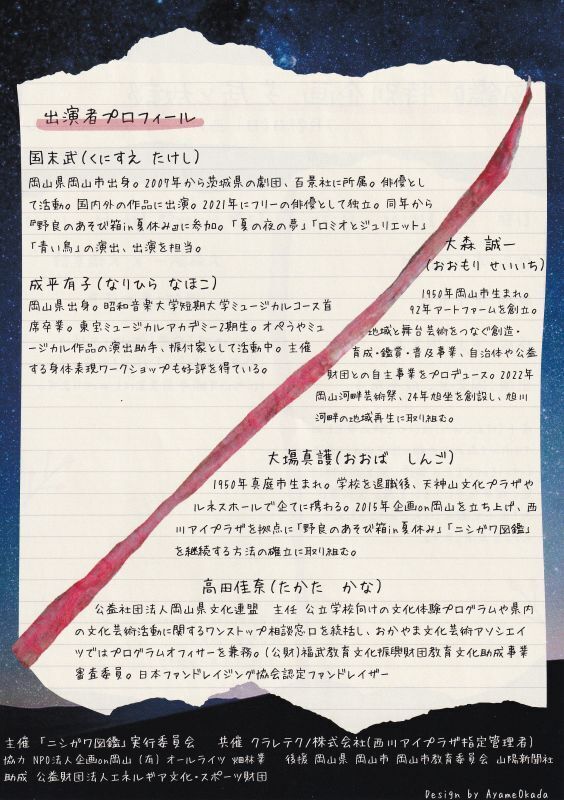 出演者プロフィール
国末武(くにすえ たけし)
岡山県岡山市出身。2007年から茨城県の劇団、百景社に所属。俳優とし
て活動。国内外の作品に出演。2021年にフリーの俳優として独立。同年から
『野良のあそび箱in夏休み』に参加。「夏の夜の夢」「ロミオとジュリエット」
「青い鳥」の演出、出演を担当。
大森 誠一
(おおもり せいいち)
1950年岡山市生まれ。
92年アートファームを創立。
地域と舞台芸術をつなぐ創造・
育成・鑑賞・普及事業、自治体や公益
財団との自主事業をプロデュース。2022年
岡山河畔芸術祭、24年旭座を創設し、旭川
河畔の地域再生に取り組む。
成平有子(なりひら なほこ)
岡山県出身。昭和音楽大学短期大学ミュージカルコース首
席卒業。東宝ミュージカルアカデミー2期生。オペラやミュ
ージカル作品の演出助手、振付家として活動中。主催
する身体表現ワークショップも好評を得ている。
大塲真護(おおば しんご)
1950年真庭市生まれ。学校を退職後、天神山文化プラザや
ルネスホールで企てに携わる。2015年企画on岡山を立ち上げ、西
川アイプラザを拠点に「野良のあそび箱in夏休み」「ニシガワ図鑑」
を継続する方法の確立に取り組む。
高田佳奈(たかた かな)
公益社団法人岡山県文化連盟 主任 公立学校向けの文化体験プログラムや県内
の文化芸術活動に関するワンストップ相談窓口を統括し、おかやま文化芸術アソシエイ
ツではプログラムオフィサーを兼務。(公財)福武教育文化振興財団教育文化助成事業
審査委員。日本ファンドレイジング協会認定ファンドレイザー
主催 「ニシガワ図鑑」実行委員会 共催 クラレテクノ株式会社(西川アイプラザ指定管理者)
協力 NPO法人企画on岡山 (有) オールライツ 畑林業 後援 岡山県 岡山市 岡山市教育委員会 山陽新聞社
助成 公益財団法人エネルギア文化・スポーツ財団
Design by AyameOkada